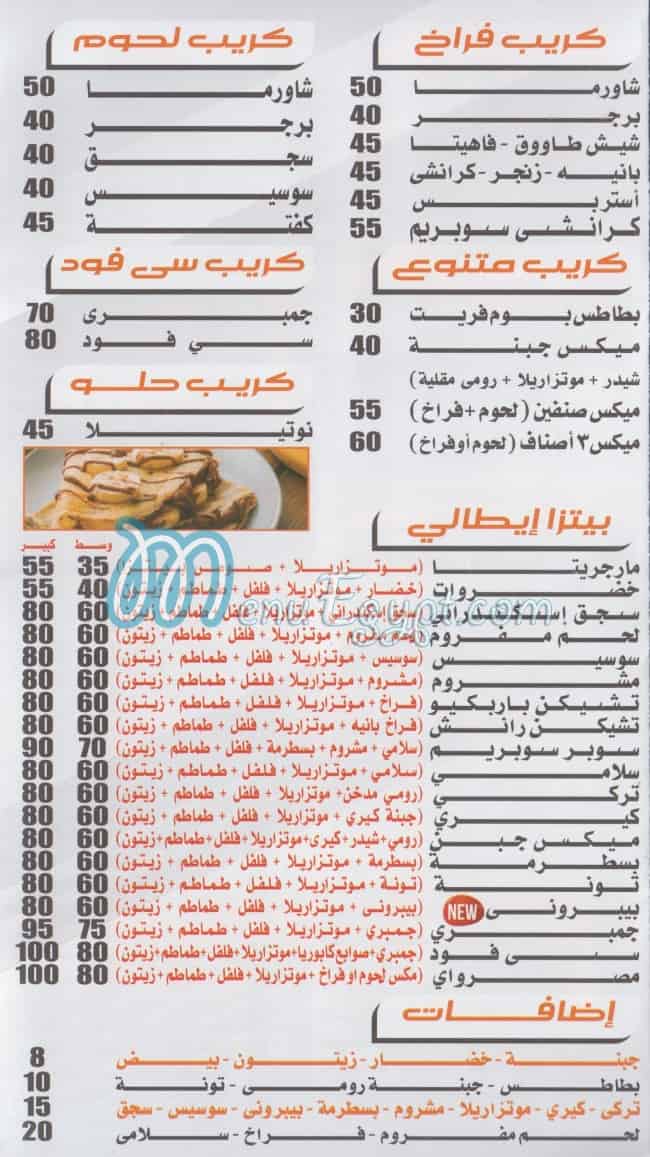 كريب فراخ
شاورما 50
برجر 40
شيش طاووق - فاهيتا 45
بانيه - زنجر - كرانشى 45
أستربس 45
كرانشى سوبريم 55
كريب متنوع
بطاطس بوم فريت 30
ميكس جبنة 40
(شيدر + موتزاريلا + رومى مقلية)
ميكس صنفين (لحوم + فراخ) 55
ميكس ٣ أصناف (لحوم أو فراخ) 60
كريب لحوم
شاورما 50
برجر 40
سجق 40
سوسيس 40
كفتة 45
كريب سى فود
جمبرى 70
سي فود 80
كريب حلو
نوتيلا 45
بيتزا إيطالي
وسط كبير
مارجريتا (موتزاريلا + صوص بيتزا) 35 55
خضروات (خضار + موتزاريلا + فلفل + طماطم + زيتون) 40 55
سجق إسكندراني (سجق إسكندرانى + موتزاريلا + فلفل + طماطم + زيتون) 60 80
لحم مفروم (لحم مفروم + موتزاريلا + فلفل + طماطم + زيتون) 60 80
سوسيس (سوسيس + موتزاريلا + فلفل + طماطم + زيتون) 60 80
مشروم (مشروم + موتزاريلا + فلفل + طماطم + زيتون) 60 80
تشيكن باربكيو (فراخ + موتزاريلا + فلفل + طماطم + زيتون) 60 80
تشيكن رانش (فراخ بانيه + موتزاريلا + فلفل + طماطم + زيتون) 60 80
سوبر سوبريم (سلامي + مشروم + بسطرمة + طماطم + زيتون) 70 90
سلامي (سلامي + موتزاريلا + فلفل + طماطم + زيتون) 60 80
تركي (رومي مدخن + موتزاريلا + فلفل + طماطم + زيتون) 60 80
كيري (جبنة كيري + موتزاريلا + فلفل + طماطم + زيتون) 60 80
ميكس جبن (رومي+شيدر+كيرى+موتزاريلا+فلفل+طماطم+زيتون) 60 80
بسطرمة (بسطرمة + موتزاريلا + فلفل + طماطم + زيتون) 60 80
تونة (تونة + موتزاريلا + فلفل + طماطم + زيتون) 60 80
بيبرونى NEW (بيبرونى + موتزاريلا + فلفل + طماطم + زيتون) 60 80
جمبري (جمبري + موتزاريلا + فلفل + طماطم + زيتون) 75 95
سى فود (جمبري+صوابع كابوريا+موتزاريلا+فلفل+طماطم+زيتون) 80 100
مصراوي (مكس لحوم او فراخ + موتزاريلا + فلفل + طماطم + زيتون) 80 100
إضافات
جبنة - خضار - زيتون - بيض 8
بطاطس - جبنة رومى - تونة 10
تركى - كيري - موتزاريلا - مشروم - بسطرمة - بيبرونى - سوسيس - سجق 15
لحم مفروم - فراخ - سلامى 20
MenuEgypt.com